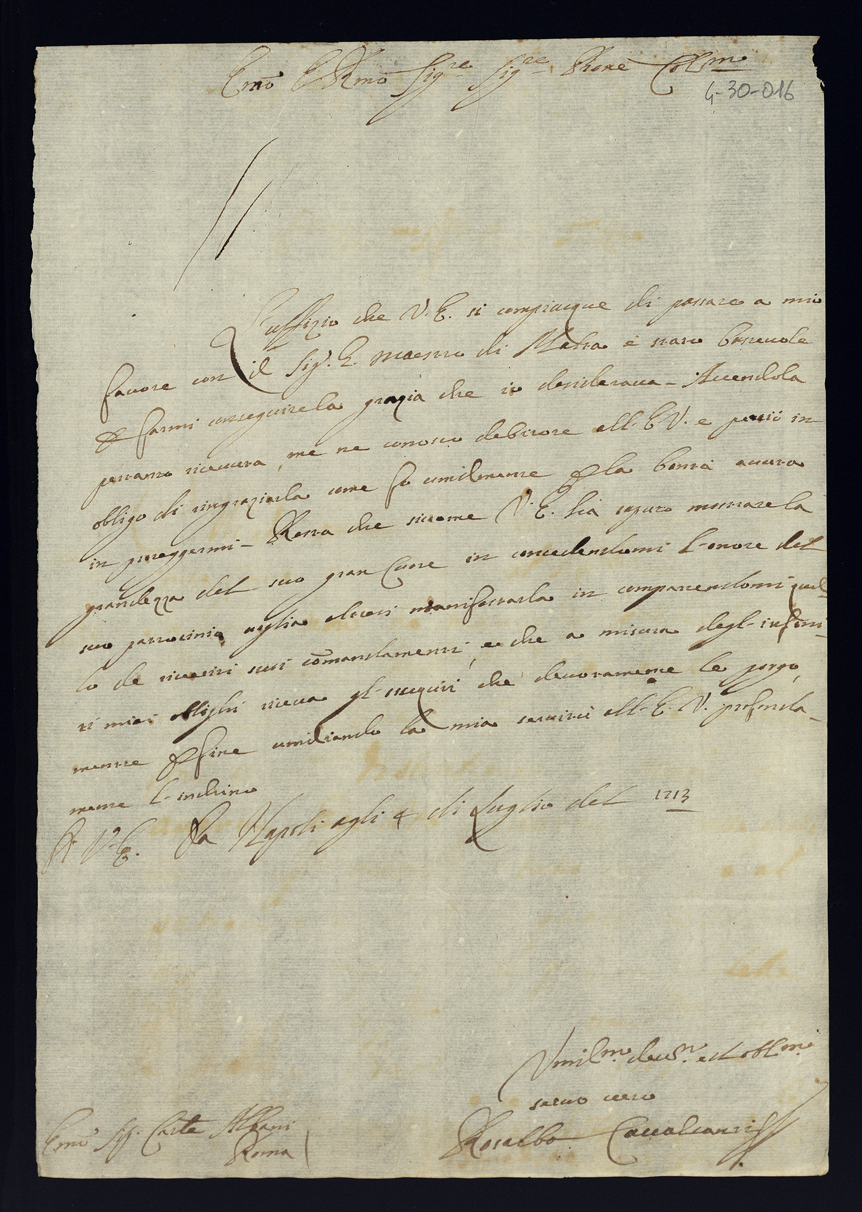 Emo e Rmo Sigre Sigre Prone Colmo
4-30-016
L'uffizio che V. E. si compiacque di passare a mio
favore con il Sigr. G. Maestro di Malta è stato bastevole
P farmi conseguire la grazia che io desiderava. Avendola
pertanto ricevuta, me ne conosco debitore all'E. V. e perciò in
obligo di ringraziarla come fo umilmente P la bontà avuta
in proteggermi. Resta che siccome V. E. hà saputo mostrare la
grandezza del suo gran Cuore in concedendomi l'onore del
suo patrocinio, voglia altresì manifestarla in compartendomi quel-
lo de riveriti suoi comandamenti, e che a misura degl'infini-
ti miei obblighi riceva gl'ossequi che devotamente le porgo,
mentre P fine umiliando la mia servitù all'E. V. profonda-
mente l'inchino
Di V. E. Da Napoli agli 4 di Luglio del 1713
Umilmo devmo ed obblmo
servo vero
Rosalbo Cavalcanti
Emo Sigr. Carle Albani
Roma